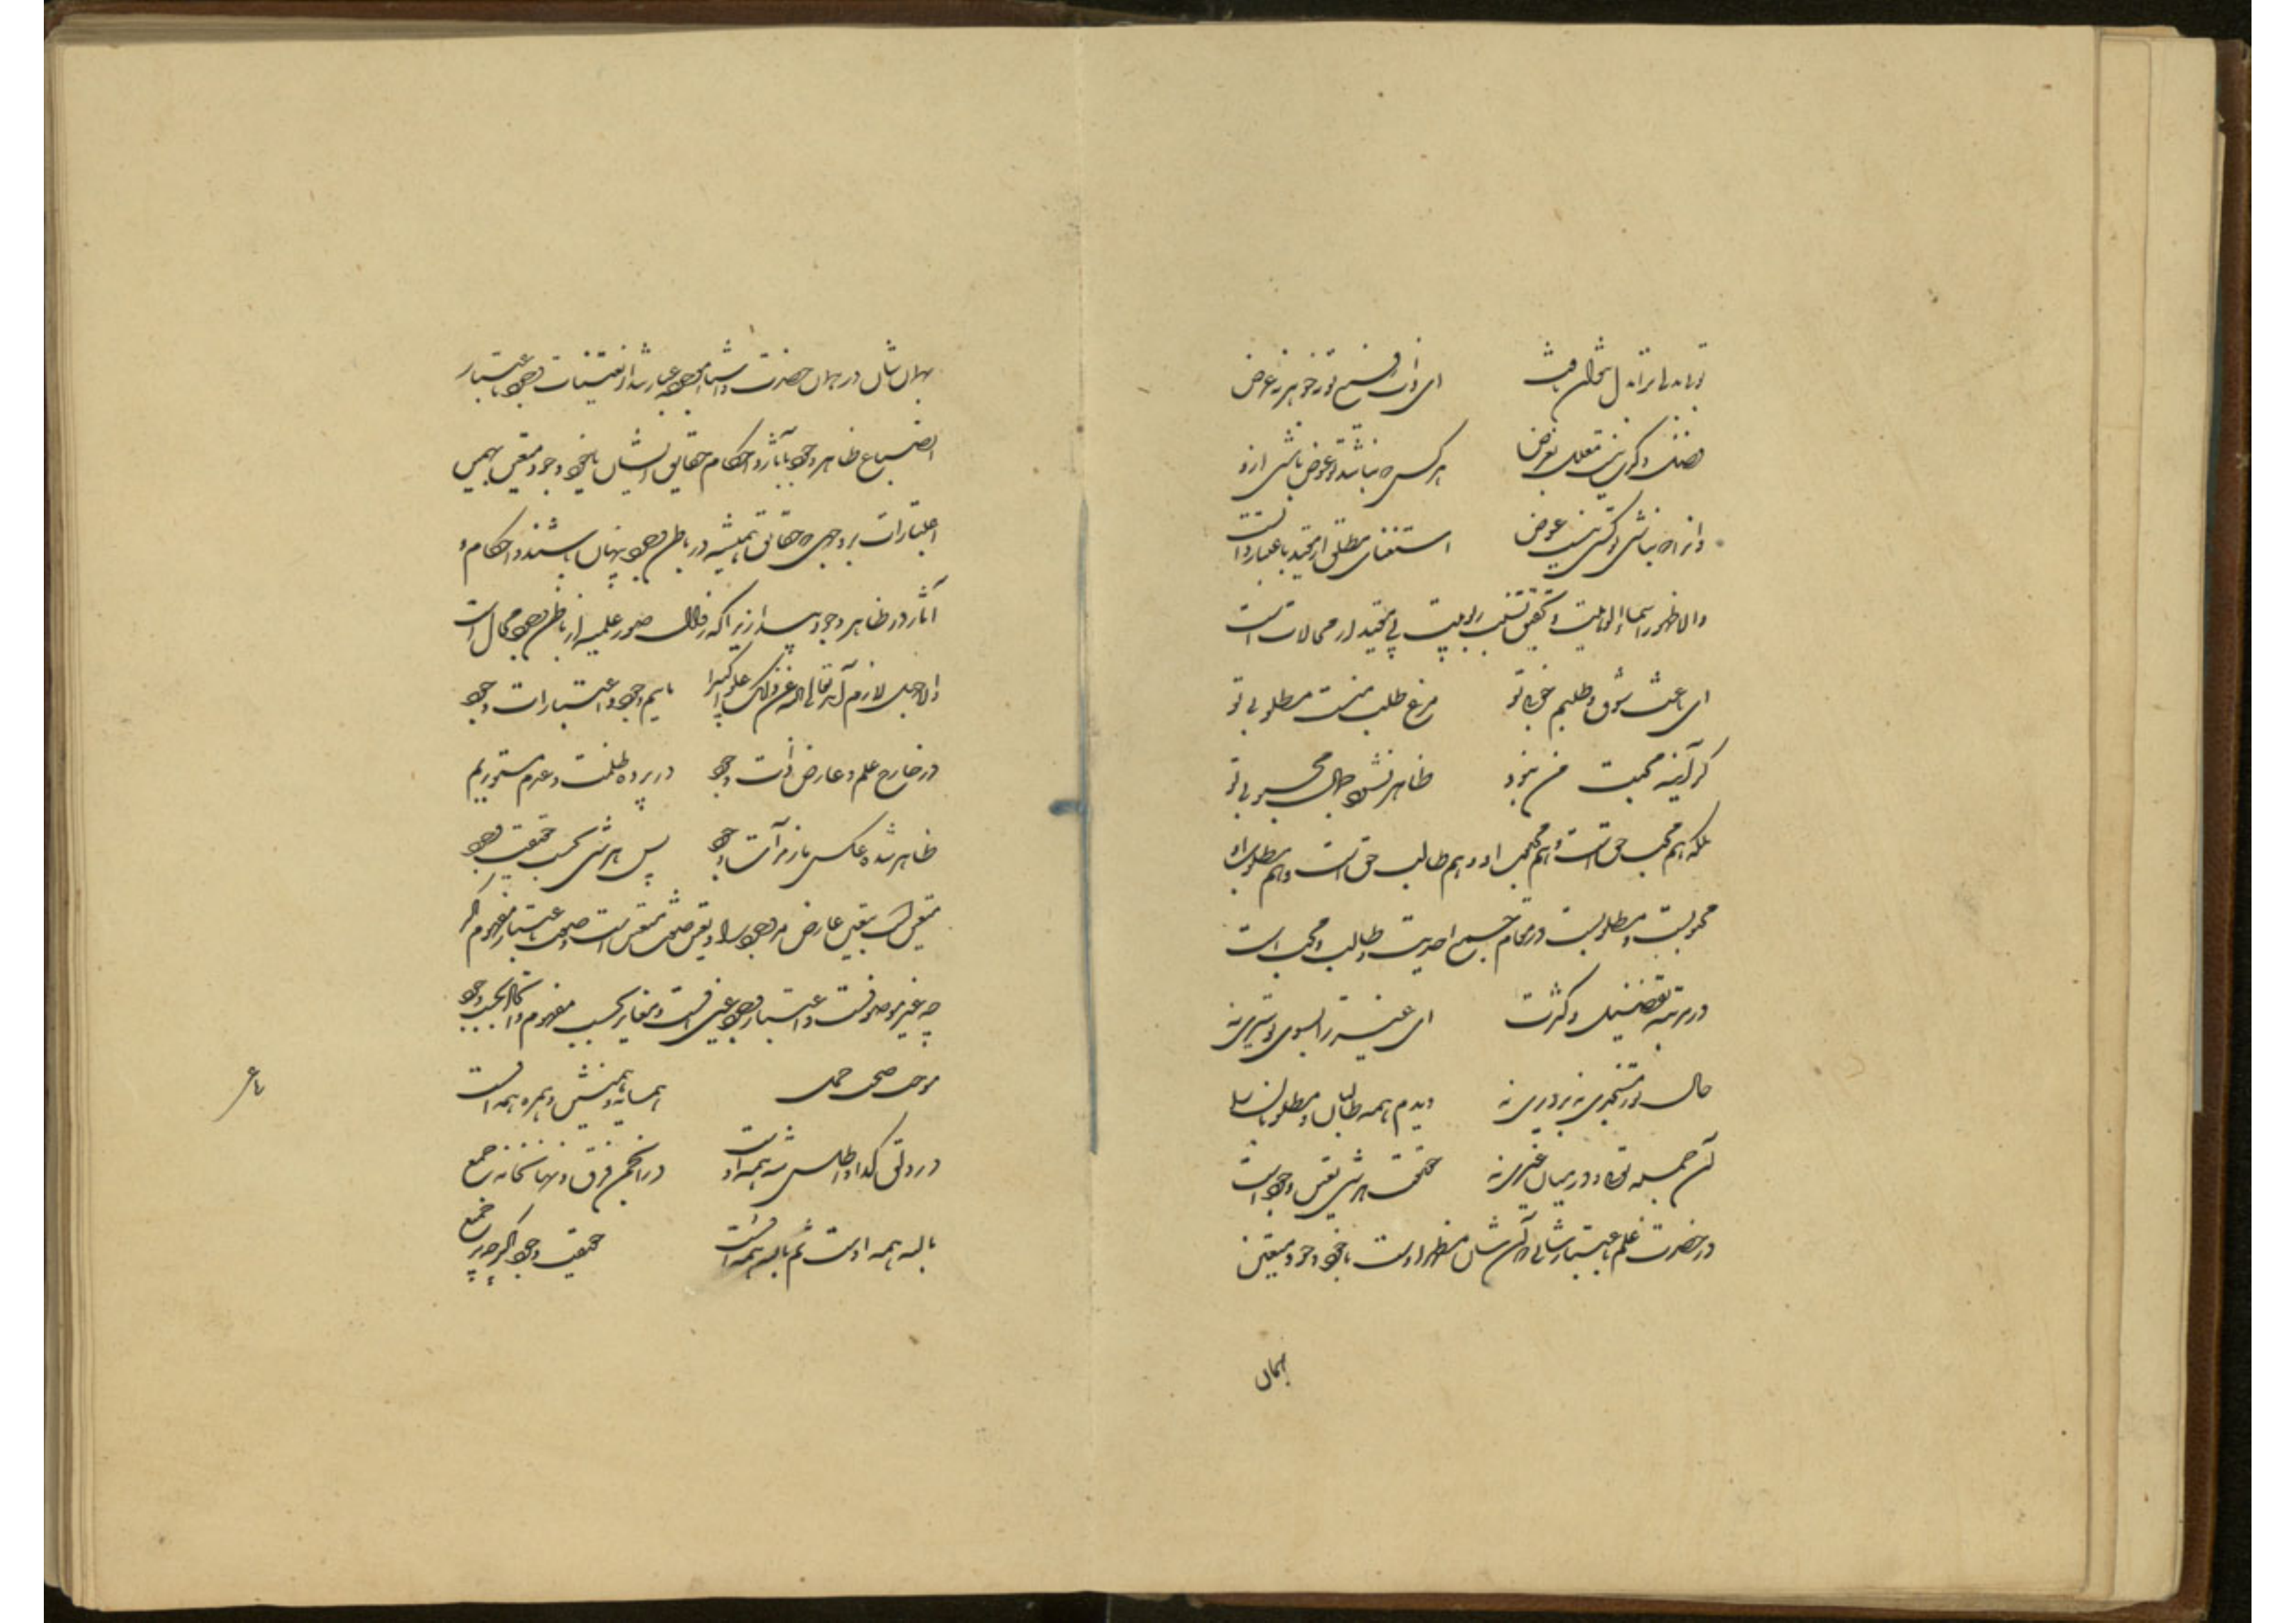 ای ذات رفیع تو نه جوهر نه عرض
فضل و کرمت نیست معلل بغرض
هر کس که نباشد تو عوض باشی ازو
وانرا که نباشی تو کسی نیست عوض
استغنای مطلق از مقید باعتبار ذاتست
والا ظهور اسماء الوهیت و تحقق نسب ربوبیت بی مقید از محالات است
ای باعث شوق و طلبم خوبی تو
فرع طلب منست مطلوبی تو
گر آینه محبت من نبود
ظاهر نشود جمال محبوبی تو
بلکه هم محب حق است و هم محبوب او و هم طالب حق است و هم مطلوب او
محبوبست و مطلوبست در مقام جمع احدیت و طالب و محب است
در مرتبه تفصیل و کثرت
ای غیر ترا بسوی تو سیری نه
خالی ز تو مسجدی نه و دیری نه
دیدم همه طالبان و مطلوبان را
آن جمله تویی و در میان غیری نه
حقیقت هر شی تعین وجود است
در حضرت علم باعتبار شانی که آن شان مظهر اوست یا خود وجود متعین
بهمان
بهمان شان در همان حضرت و اشیاء موجوده عبارتند از تعینات وجود باعتبار
انصباغ ظاهر وجود بآثار و احکام حقایق ایشان یا خود وجود متعین بهمین
اعتبارات بر وجهی که حقایق همیشه در باطن وجود پنهان باشند و احکام و
آثار در ظاهر وجود پیدا زیرا که زوال صور علمیه از باطن وجود محال است
والا جهل لازم آید تعالی الله عن ذلک علوا کبیرا
ماییم وجود و اعتبارات وجود
در خارج علم و عارض ذات وجود
در پرده ظلمت و عدم مستوریم
ظاهر شده عکس ما ز مرآت وجود
پس هر شی بحسب حقیقت وجود
متعین است یا تعین عارض مر وجود را و تعین صفت متعین است و صفت باعتبار مفهوم اگر
چه غیر موصوفست باعتبار وجود عین اوست و تغایر بحسب مفهوم و اتحاد بحسب وجود
موجب صحت حمل
همسایه و همنشین و همره همه اوست
در دلق گدا و اطلس شه همه اوست
در انجمن فرق و نهانخانه جمع
بالله همه اوست ثم بالله همه اوست
حقیقت وجود اگر چه بر جمیع